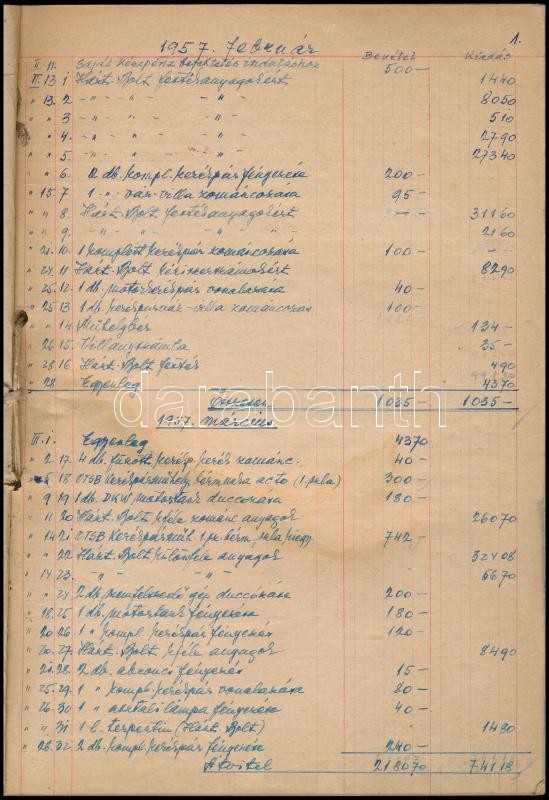 1957. február 1.
Bevétel Kiadás
II. 11. Saját készpénz befektetés induláshoz 500–
II. 13 1 Házt. Bolt festékanyagokért 1440
" 13. 2 –"– –"– –"– 8050
" " 3 –"– –"– –"– 510
" " 4. –"– –"– –"– 2790
" " 5. –"– –"– –"– 27340
" " 6. 2 db. kompl. kerékpár fényezése 200–
" 15. 7 1 –"– váz-villa zománcozása 95–
" " 8. Házt. Bolt festékanyagokért 31160
" " 9. –"– –"– –"– 2160
" 21. 10. 1 komplett kerékpár zománcozása 100–
" 24. 11 Házt. Bolt 8290
" 25. 12. 1 db. motorkerékpár vonalazása 40–
" 25 13 1 db. kerékpárváz-villa zománcozás 100–
" " 14 Műhelybér 134–
" 26 15. Villanyszámla 35–
" 28 16 Házt. Bolt festék 490
" 28. Egyenleg 4370
Összesen 1035– 1035–
1957. március
III. 1. Egyenleg 4370
" 2. 17. 4 db. futott kerékp. kerék zománc. 40–
" 5. 18. OTSB Kerékpárműhely számla 300–
" 9 19 1 db. DKW motortank duccózása 180–
" 11 20 Házt. Bolt kfele zománc anyagok 26070
" 14 21 OTSB Kerékpárműh. 742–
" " 22 Házt. Bolt különféle anyagok 32408
" 14 23. –"– –"– 5670
" " 24 2 db gép duccózása 200–
" 18. 25 1 db. motortank fényezése 180–
" 20 26. 1 " kompl. kerékpár fényezés 120–
" 20. 27 Házt. Bolt kfele anyagok 8490
" 21. 28. 2 db. abroncs fényezés 15–
" 25. 29. 1 " kompl. kerékpár vonalazása 80–
" 26. 30 1 " asztali lámpa fényezése 40–
" " 31 1 l. terpentin (Házt. Bolt) 1480
" 28. 32 2 db. kompl. kerékpár fényezése 240–
Átvitel 218070 74118
darabanth